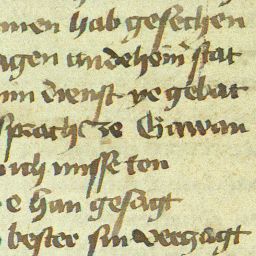 men hab gesechen
agen an dehein stat
min dienst ye gebat
sprach ze Gawan
uch misseton
e han gesagt
bester sin verzagt